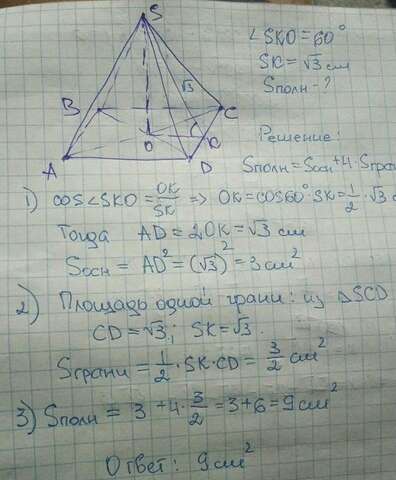 S
∠SKO = 60°
SK = √3 см
Sполн - ?
√3
B
C
K
O
A
D
Решение:
Sполн = Sосн + 4·Sграни
1) cos∠SKO = OK/SK => OK = cos60°·SK = 1/2·√3 с
Тогда AD = 2OK = √3 см
Sосн = AD² = (√3)² = 3 см²
2) Площадь одной грани: из △SCD
CD = √3; SK = √3.
Sграни = 1/2·SK·CD = 3/2 см²
3) Sполн = 3 + 4·3/2 = 3 + 6 = 9 см²
Ответ: 9 см²